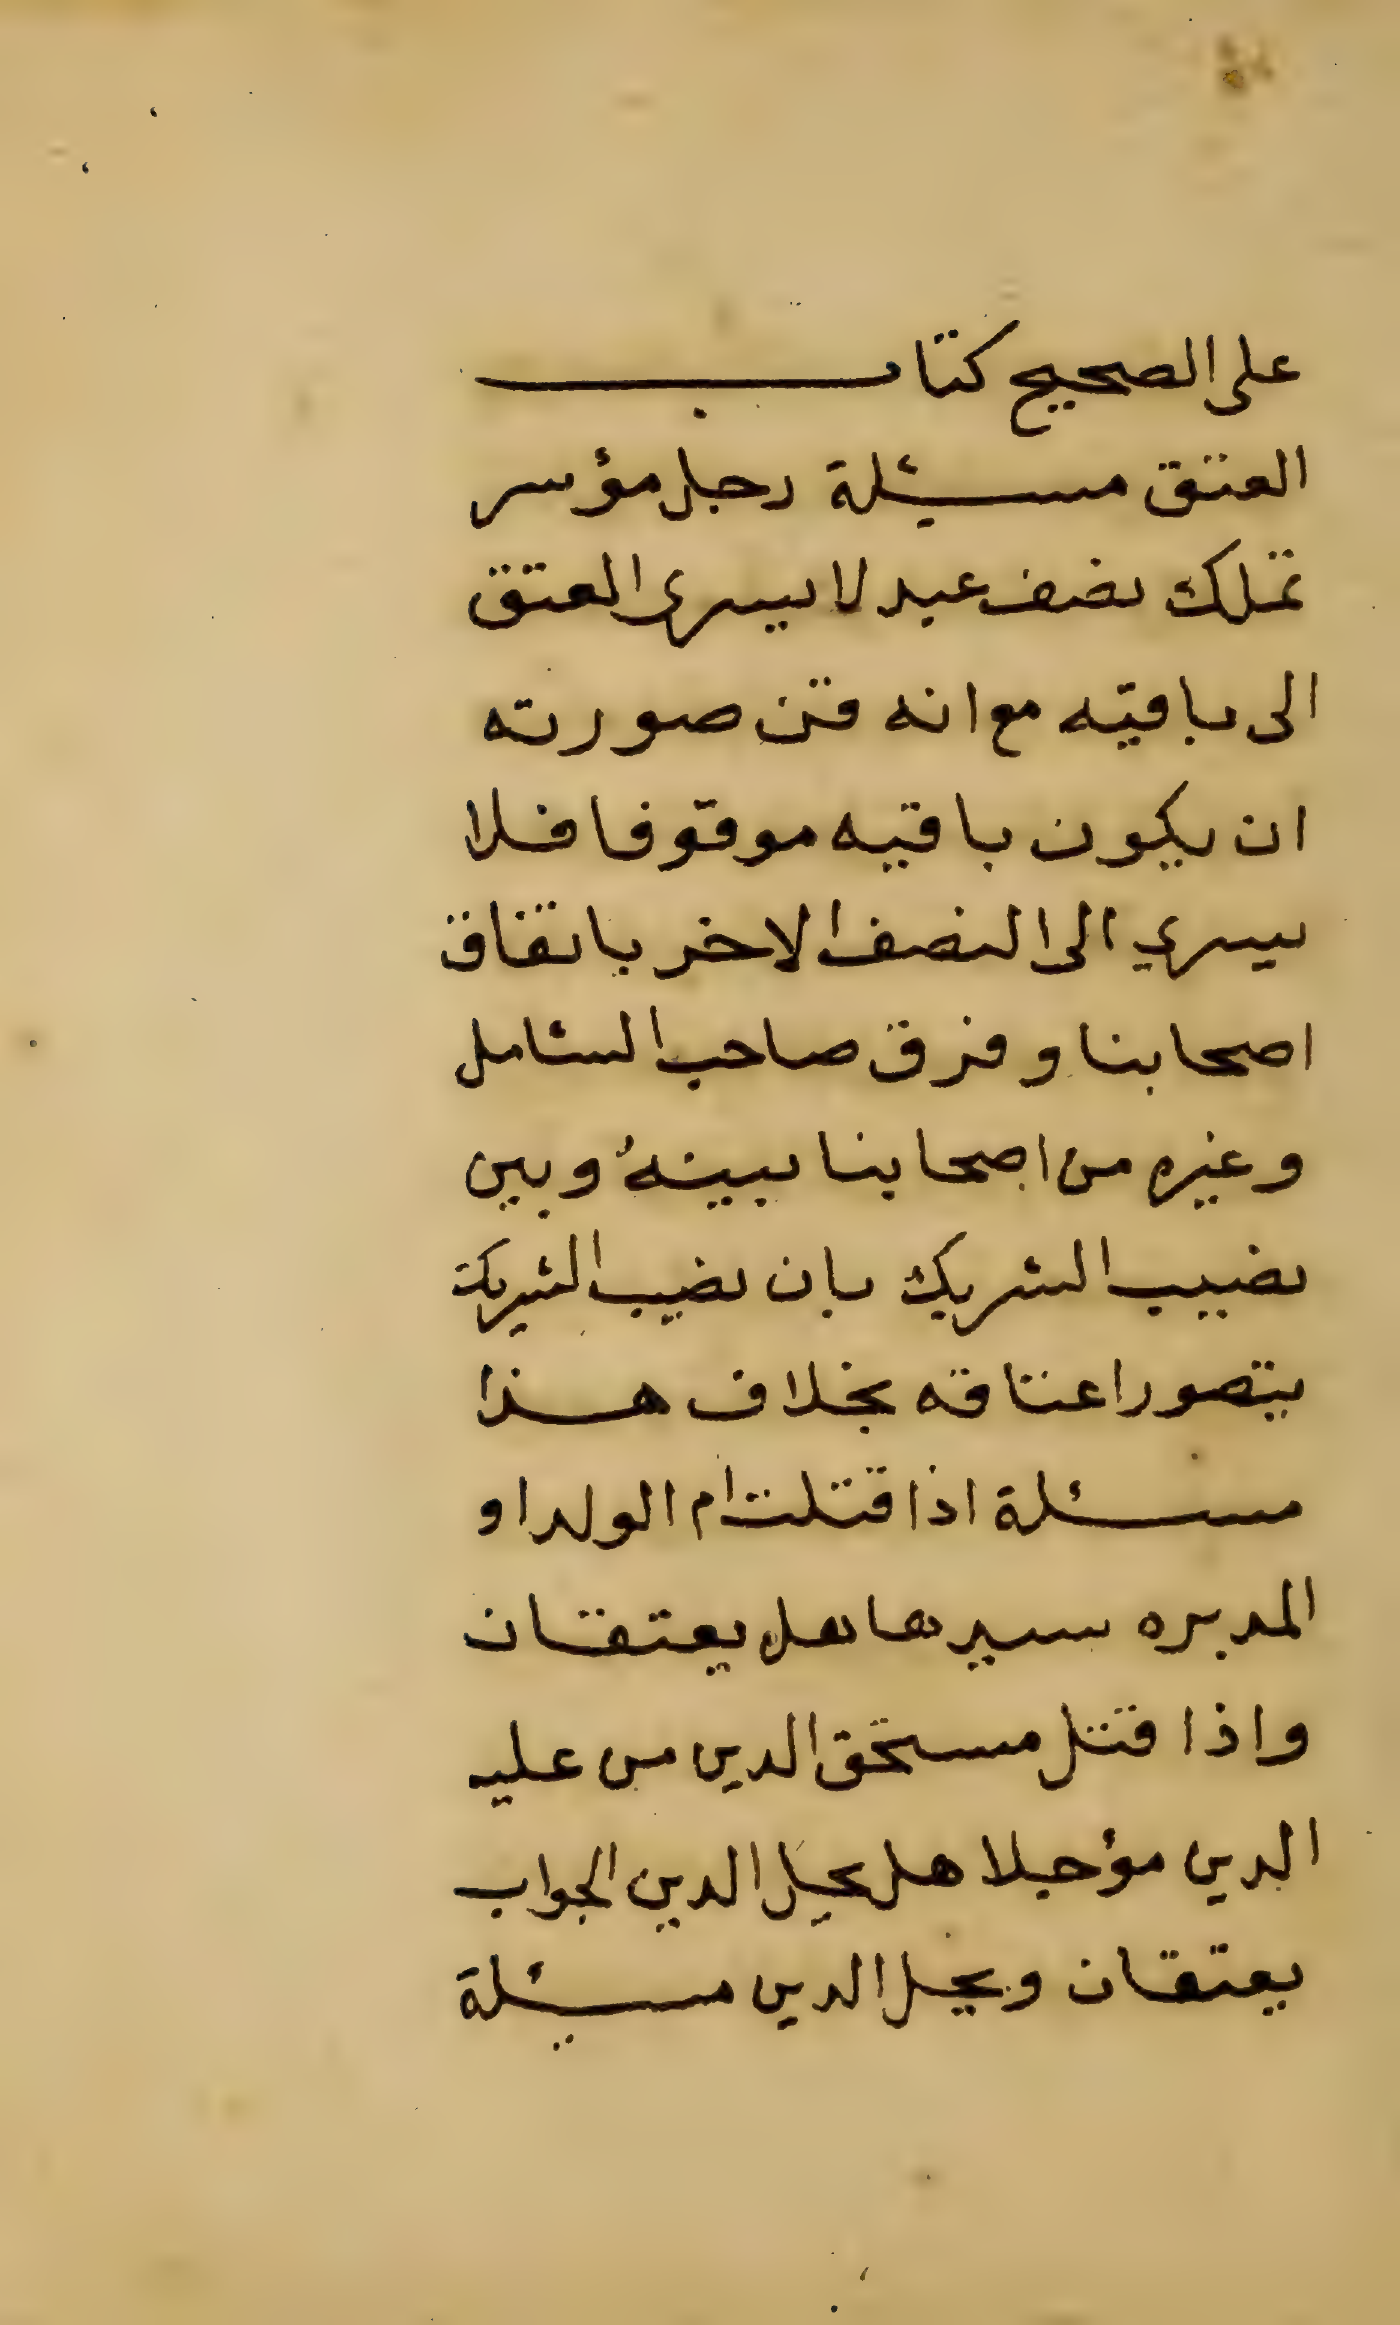 على الصحيح كتاب
العتق مسئلة رجل مؤسر
تملك نصف عبد لا يسرى العتق
الى باقيه مع انه قن صورته
ان يكون باقيه موقوفا فلا
يسري الى النصف الاخر باتفاق
اصحابنا وفرق صاحب الشامل
وغيره من اصحابنا بينهُ وبين
نصيب الشريك بان نصيب الشريك
يتصور اعتاقه بخلاف هذا
مسئلة اذا قتلت ام الولد او
المدبره سيدها هل يعتقان
واذا قتل مستحق الدين من عليه
الدين مؤجلا هل يحل الدين الجواب
يعتقان ويحل الدين مسئلة